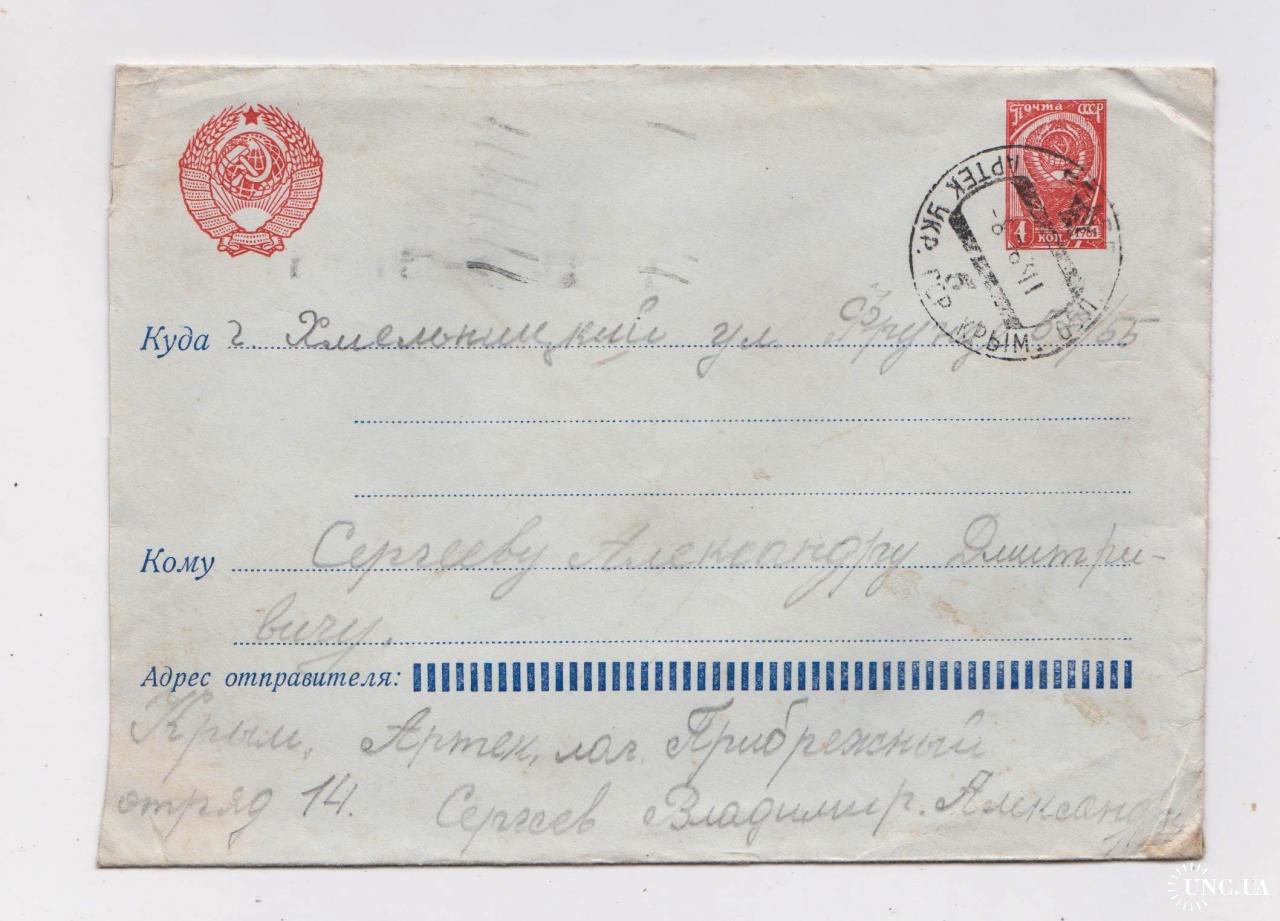 Почта СССР
4 КОП
1961
АРТЕК УКР. ССР КРЫМ. ОБЛ
Куда г. Хмельницкий ул
Кому Сергееву Александру Дмитри-
вичу.
Адрес отправителя:
Крым, Артек, лаг. Прибрежный
отряд 14. Сергеев Владимир. Александр
UNC.UA